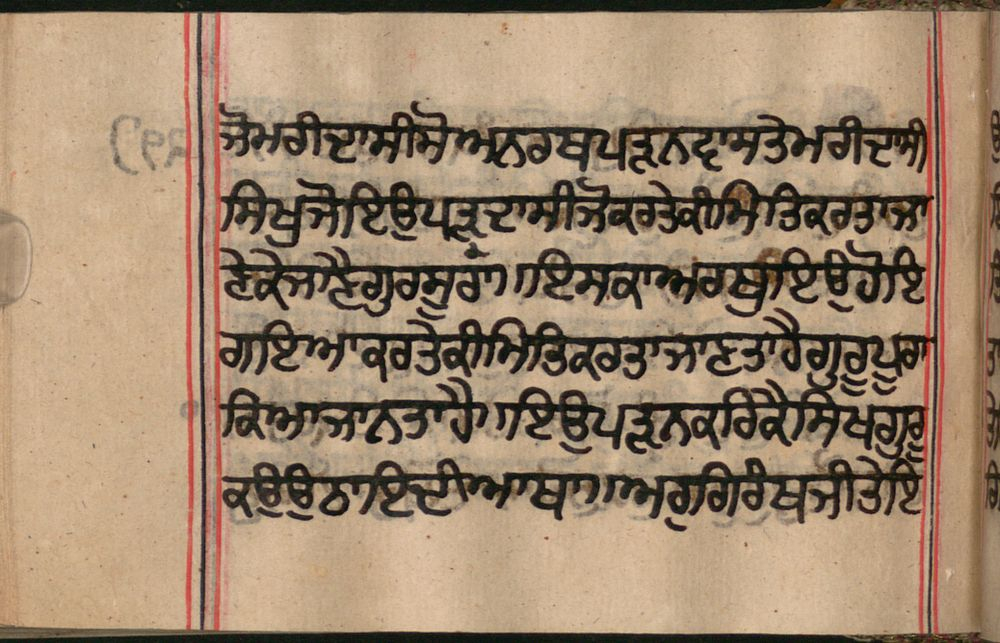 ਜੋ ਮਰੀਦਾ ਸੀ ਸੋ ਅਨਰਥ ਪੜ੍ਹਨ ਵਾਸਤੇ ਮਰੀਦਾ ਸੀ
ਸਿਖੁ ਜੋ ਇਉ ਪੜ੍ਹਦਾ ਸੀ ਜੋ ਕਰਤੇ ਕੀ ਮਿਤਿ ਕਰਤਾ ਜਾ
ਣੇ ਕੇ ਜਾਣੈ ਗੁਰ ਸੂਰਾਂ ॥ ਇਸ ਕਾ ਅਰਥੁ ਇਉ ਹੋਇ
ਗਇਆ ਕਰਤੇ ਕੀ ਮਿਤਿ ਕਰਤਾ ਜਾਣਤਾ ਹੈ ਗੁਰੂ ਪੂਰਾ
ਕਿਆ ਜਾਨਤਾ ਹੈ ॥ ਇਉ ਪੜ੍ਹਨ ਕਰਿਕੈ ਸਿਖ ਗੁਰੂ
ਕਉ ਉਠਾਇ ਦੀਆ ਥਾ ॥ ਅਰੁ ਗਿਰੰਥ ਜੀ ਤੇ ਇ